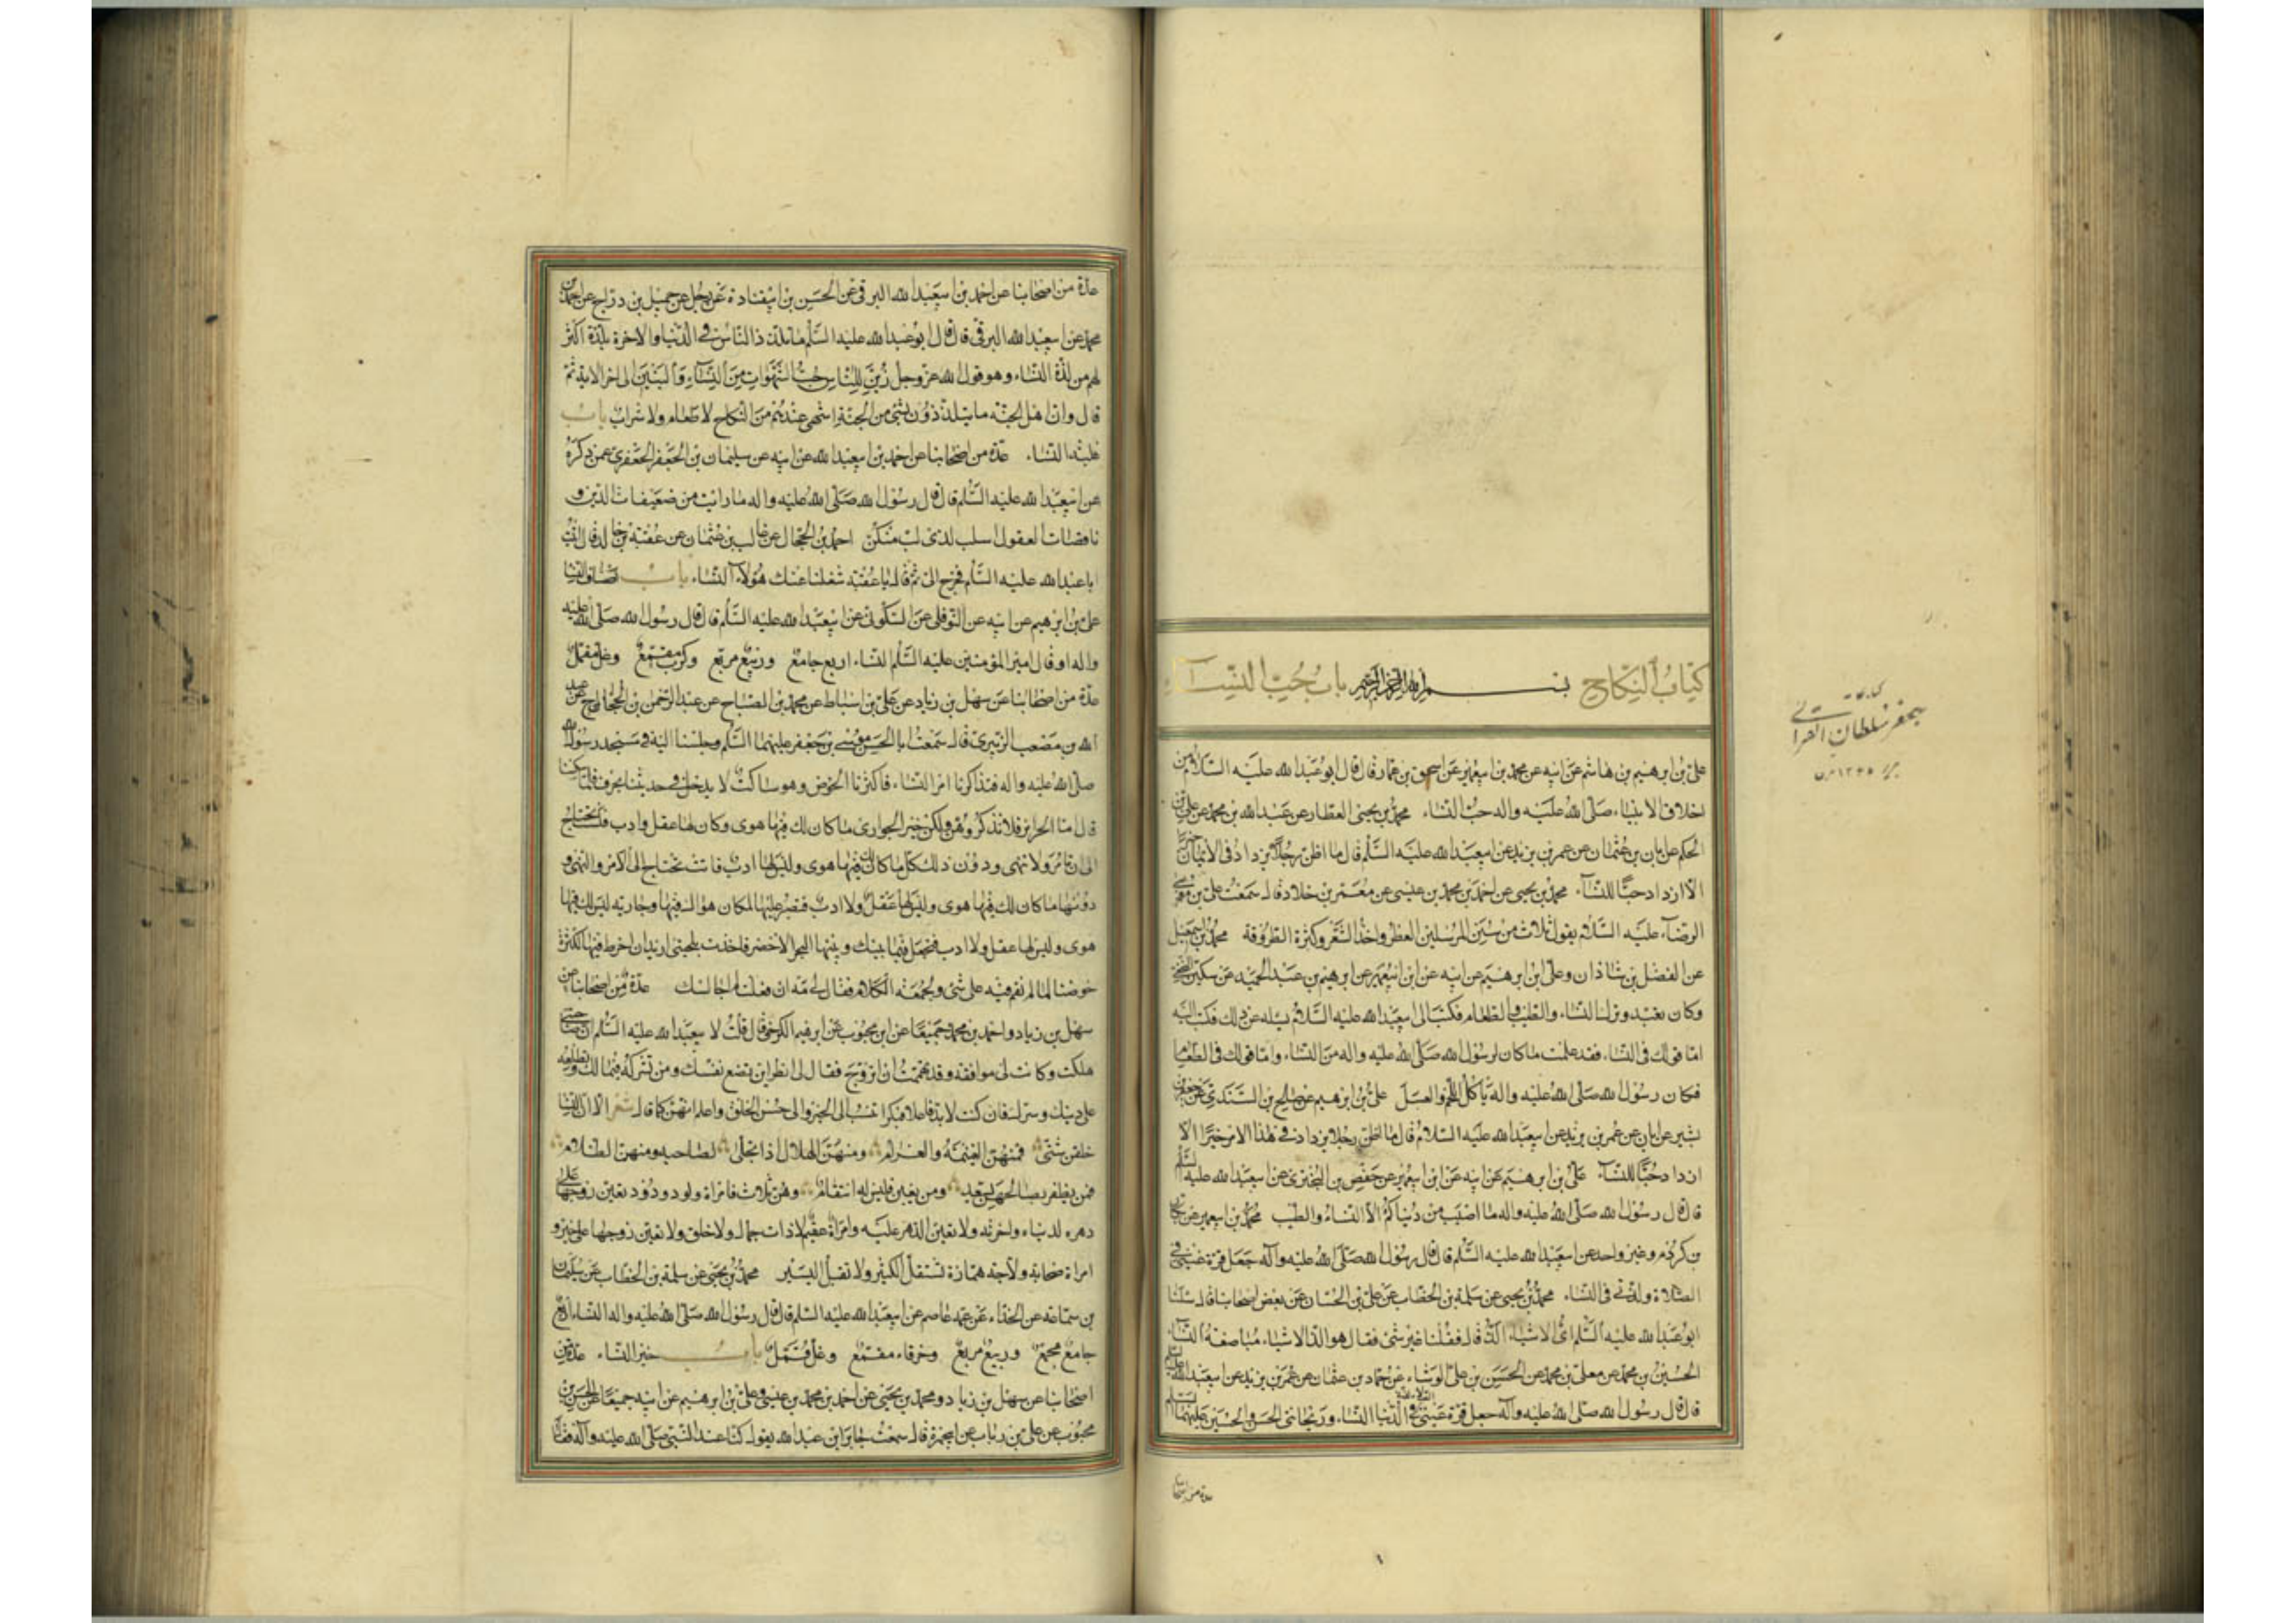 كتاب النكاح بسم الله الرحمن الرحيم باب حب النساء
علي بن ابرهيم بن هاشم عن ابيه عن محمد بن ابيعمير عن اسحق بن عمار قال قال ابوعبدالله عليه السلام من
اخلاق الانبياء صلى الله عليه واله حب النساء محمد بن يحيى العطار عن عبدالله بن محمد عن علي بن
الحكم عن ابان بن عثمان عن عمر بن يزيد عن ابيعبدالله عليه السلم قال ما اظن رجلا يزداد في الايمان خيرا
الا ازداد حبا للنساء محمد بن يحيى عن احمد بن محمد بن عيسى عن معمر بن خلاد قال سمعت علي بن موسى
الرضا عليه السلام يقول ثلاث من سنن المرسلين العطر واخذ الشعر وكثرة الطروقة محمد بن اسمعيل
عن الفضل بن شاذان وعلي ابن ابرهيم عن ابيه عن ابن ابيعمير عن ابرهيم بن عبد الحميد عن سكين النخعي
وكان تعبد وترك النساء والطيب والطعام فكتب الى ابيعبدالله عليه السلام يسئله عن ذلك فكتب اليه
اما قولك في النساء فقد علمت ما كان لرسول الله صلى الله عليه واله من النساء واما قولك في الطعام
فكان رسول الله صلى الله عليه واله ياكل اللحم والعسل علي بن ابرهيم عن صالح بن السندي عن جعفر بن
بشير عن ابان عن عمر بن يزيد عن ابيعبدالله عليه السلام قال ما اظن رجلا يزداد في هذا الامر خيرا الا
ازداد حبا للنساء علي بن ابرهيم عن ابيه عن ابن ابيعمير عن حفص بن البختري عن ابيعبدالله عليه السلم
قال قال رسول الله صلى الله عليه واله ما اصيب من دنياكم الا النساء والطيب محمد بن ابيعمير عن بكار
بن كردم وغير واحد عن ابيعبدالله عليه السلم قال قال رسول الله صلى الله عليه وآله جعل قرة عيني في
الصلاة ولذتي في النساء محمد بن يحيى عن سلمة بن الخطاب عن علي بن الحسان عن بعض اصحابنا قال سئلنا
ابوعبدالله عليه السلم اي الاشياء الذ قال فقلنا غير شيء فقال هو الذ الاشياء مباضعة النساء
الحسين بن محمد عن معلى بن محمد عن الحسن بن علي الوشاء عن حماد بن عثمان عن عمر بن يزيد عن ابيعبدالله عليه السلم
قال قال رسول الله صلى الله عليه وآله جعل قرة عيني في الصلاة ولذتي في الدنيا النساء وريحانتي الحسن والحسين عليهما السلم
عدة من اصحابنا
عدة من اصحابنا عن احمد بن ابيعبدالله البرقي عن الحسن بن ابيقتادة عن رجل عن جميل بن دراج عن احمد بن
محمد عن ابيعبدالله البرقي قال قال ابوعبدالله عليه السلم ما تلذذ الناس في الدنيا والاخرة بلذة اكثر
لهم من لذة النساء وهو قول الله عز وجل زين للناس حب الشهوات من النساء والبنين الى اخر الاية ثم
قال وان اهل الجنة ما يتلذذون بشيء من الجنة اشهى عندهم من النكاح لا طعام ولا شراب باب
غلبة النساء عدة من اصحابنا عن احمد بن ابيعبدالله عن ابيه عن سليمان بن الجعفر الجعفري عمن ذكره
عن ابيعبدالله عليه السلم قال قال رسول الله صلى الله عليه واله ما رايت من ضعيفات الدين و
ناقصات العقول اسلب لذي لب منكن احمد بن الحجال عن غالب بن عثمان عن عقبة بن خالد قال اتيت
اباعبدالله عليه السلم فخرج الي ثم قال يا عقبة شغلنا عنك هؤلاء النساء باب اصناف النساء
علي بن ابرهيم عن ابيه عن النوفلي عن السكوني عن ابيعبدالله عليه السلم قال قال رسول الله صلى الله عليه
واله او قال امير المؤمنين عليه السلم النساء اربع جامع وربيع مربع وكرب مقمع وغل قمل
عدة من اصحابنا عن سهل بن زياد عن علي بن اسباط عن محمد بن الصباح عن عبد الرحمن بن الحجاج عن عبد
الله بن مصعب الزبيري قال سمعت ابا الحسن موسى بن جعفر عليهما السلم وجلسنا اليه في مسجد رسول الله
صلى الله عليه واله فتذاكرنا امر النساء فاكثرنا الخوض وهو ساكت لا يدخل في حديثنا بحرف فلما سكتنا
قال اما الحراير فلا تذكروهن ولكن خير الجواري ما كان لك فيها هوى وكان لها عقل وادب فلست تحتاج
الى ان تامر ولا تنهى ودون ذلك ما كان لك فيها هوى وليس لها ادب فانت تحتاج الى الامر والنهي و
دونها ما كان لك فيها هوى وليس لها عقل ولا ادب فتصبر عليها لمكان هواك فيها وجارية ليس لك فيها
هوى وليس لها عقل ولا ادب فتجعل فيما بينك وبينها البحر الاخضر فاخذت بلحيتي اريد ان اضرط فيها لكثرة
خوضنا لما لم نقم فيه على شيء ولجمعه الكلام فقال لي مه ان فعلت لم اجالسك عدة من اصحابنا عن
سهل بن زياد واحمد بن محمد جميعا عن ابن محبوب عن ابرهيم الكرخي قال قلت لابيعبدالله عليه السلم ان صاحبتي
هلكت وكانت لي موافقة وقد هممت ان اتزوج فقال لي انظر اين تضع نفسك ومن تشركه في مالك وتطلعه
على دينك وسرك فان كنت لابد فاعلا فبكرا تنسب الى الخير والى حسن الخلق واعلم انهن كما قال شعر الا ان النساء
خلقن شتى فمنهن الغنيمة والغرام ومنهن الهلال اذا تجلى لصاحبه ومنهن الظلام
فمن يظفر بصالحهن يسعد ومن يغبن فليس له انتقام وهن ثلاث فامراة ولود ودود تعين زوجها على
دهره لدنياه واخرته ولا تعين الدهر عليه وامراة عقيم لا ذات جمال ولا خلق ولا تعين زوجها على خير و
امراة صخابة ولاجة همازة تستقل الكثير ولا تقبل اليسير محمد بن يحيى عن سلمة بن الخطاب عن سليمان
بن سماعة عن الحذاء عن عمه عاصم عن ابيعبدالله عليه السلم قال قال رسول الله صلى الله عليه واله النساء اربع
جامع مجمع وربيع مربع وخرقاء مقمع وغل قمل باب خير النساء عدة من
اصحابنا عن سهل بن زياد ومحمد بن يحيى عن احمد بن محمد بن عيسى وعلي بن ابرهيم عن ابيه جميعا عن الحسن بن
محبوب عن علي بن رئاب عن ابيحمزة قال سمعت جابر ابن عبدالله يقول كنا عند النبي صلى الله عليه وآله فقال